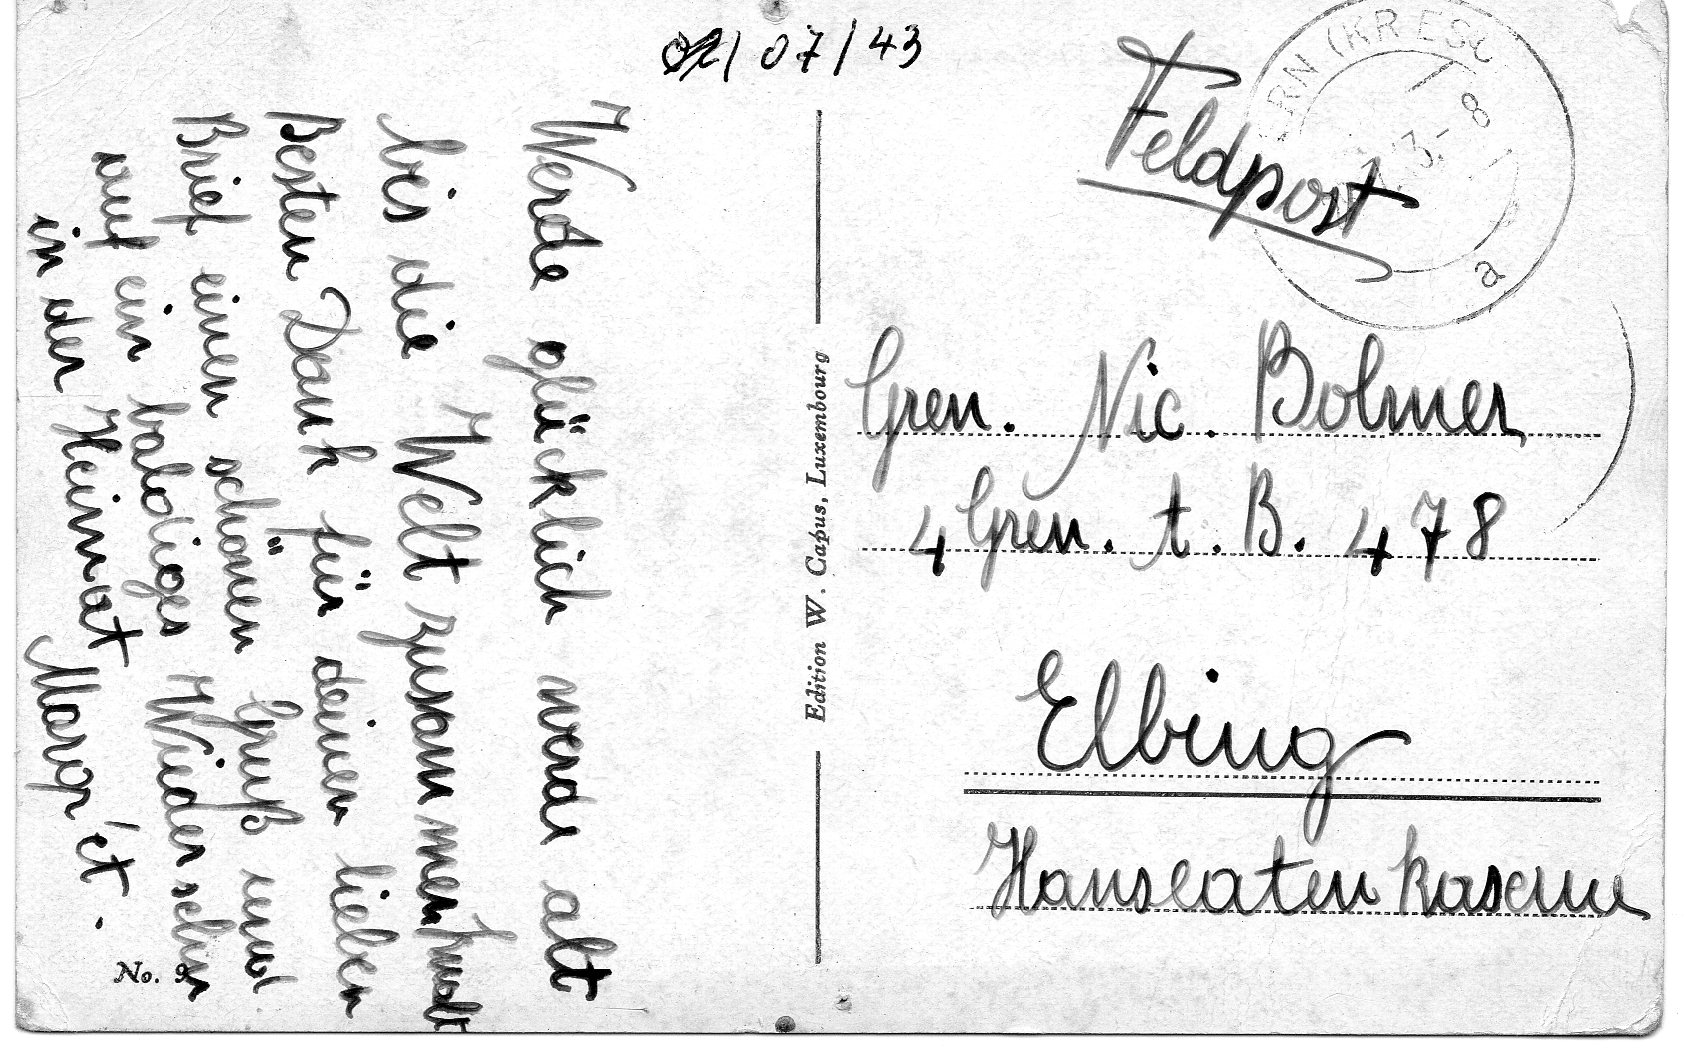 02/07/43
Werde glücklich werde alt
bis die Welt zusammenknalt
Besten Dank für deinen lieben
Brief einen schönen Gruß und
auf ein baldiges Wiedersehn
in der Heimat Marg'et.
No. 9
Edition W. Capus, Luxembourg
Feldpost
RN (KR ESCH
43 - 8
a
Gren. Nic. Bolmer
4 Gren. t. B. 478
Elbing
Hanseatenkaserne